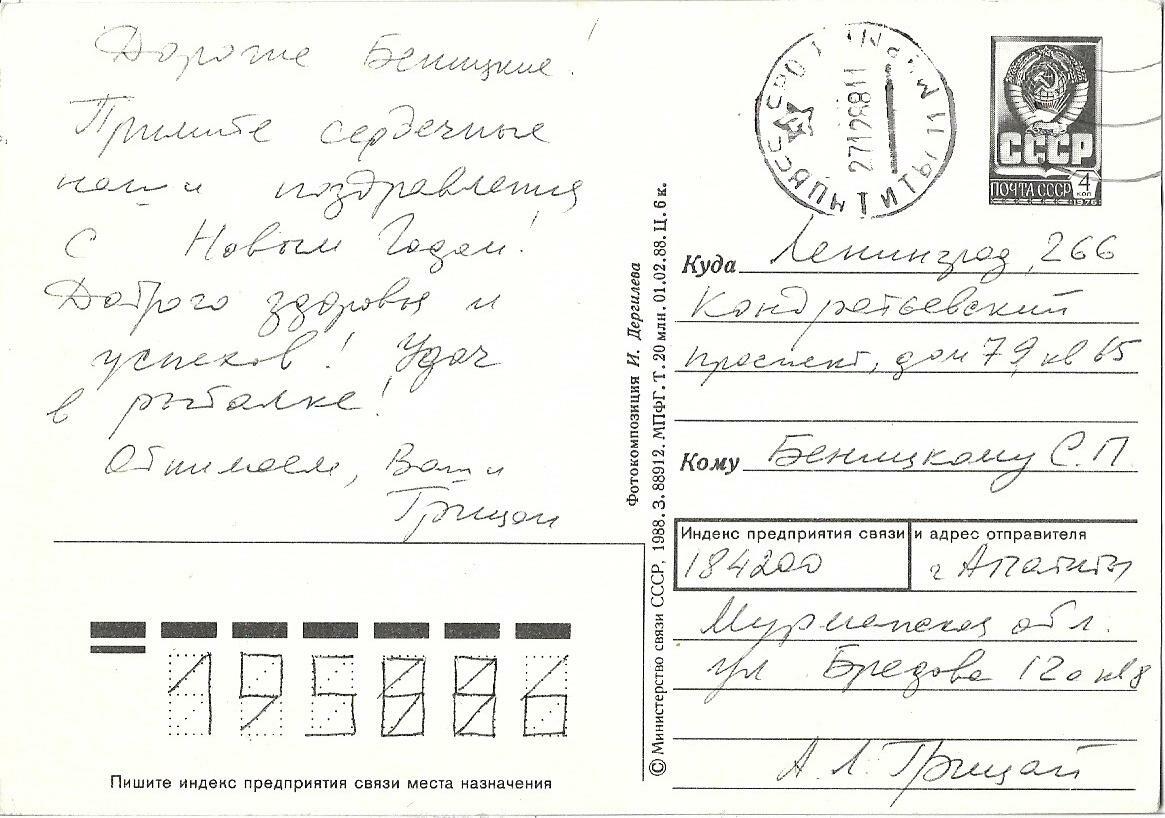 Дорогие Беницкие!
Примите сердечные
наши поздравления
с Новым Годом!
Доброго здоровья и
успехов! Удач
в рыбалке!
Обнимаем, Ваши
Грицаи
Пишите индекс предприятия связи места назначения
Фотокомпозиция И. Дергилева
© Министерство связи СССР, 1988. З. 88912. МПФГ. Т. 20 млн. 01.02.88. Ц. 6 к.
27128811
СССР
ПОЧТА СССР 4 КОП
1976
Куда Ленинград, 266
Кондратьевский
проспект, дом 79, кв 65
Кому Беницкому С.П.
Индекс предприятия связи и адрес отправителя
184200 г Апатиты
Мурманская обл.
ул Бредова 12а кв 8
А Л. Грицай